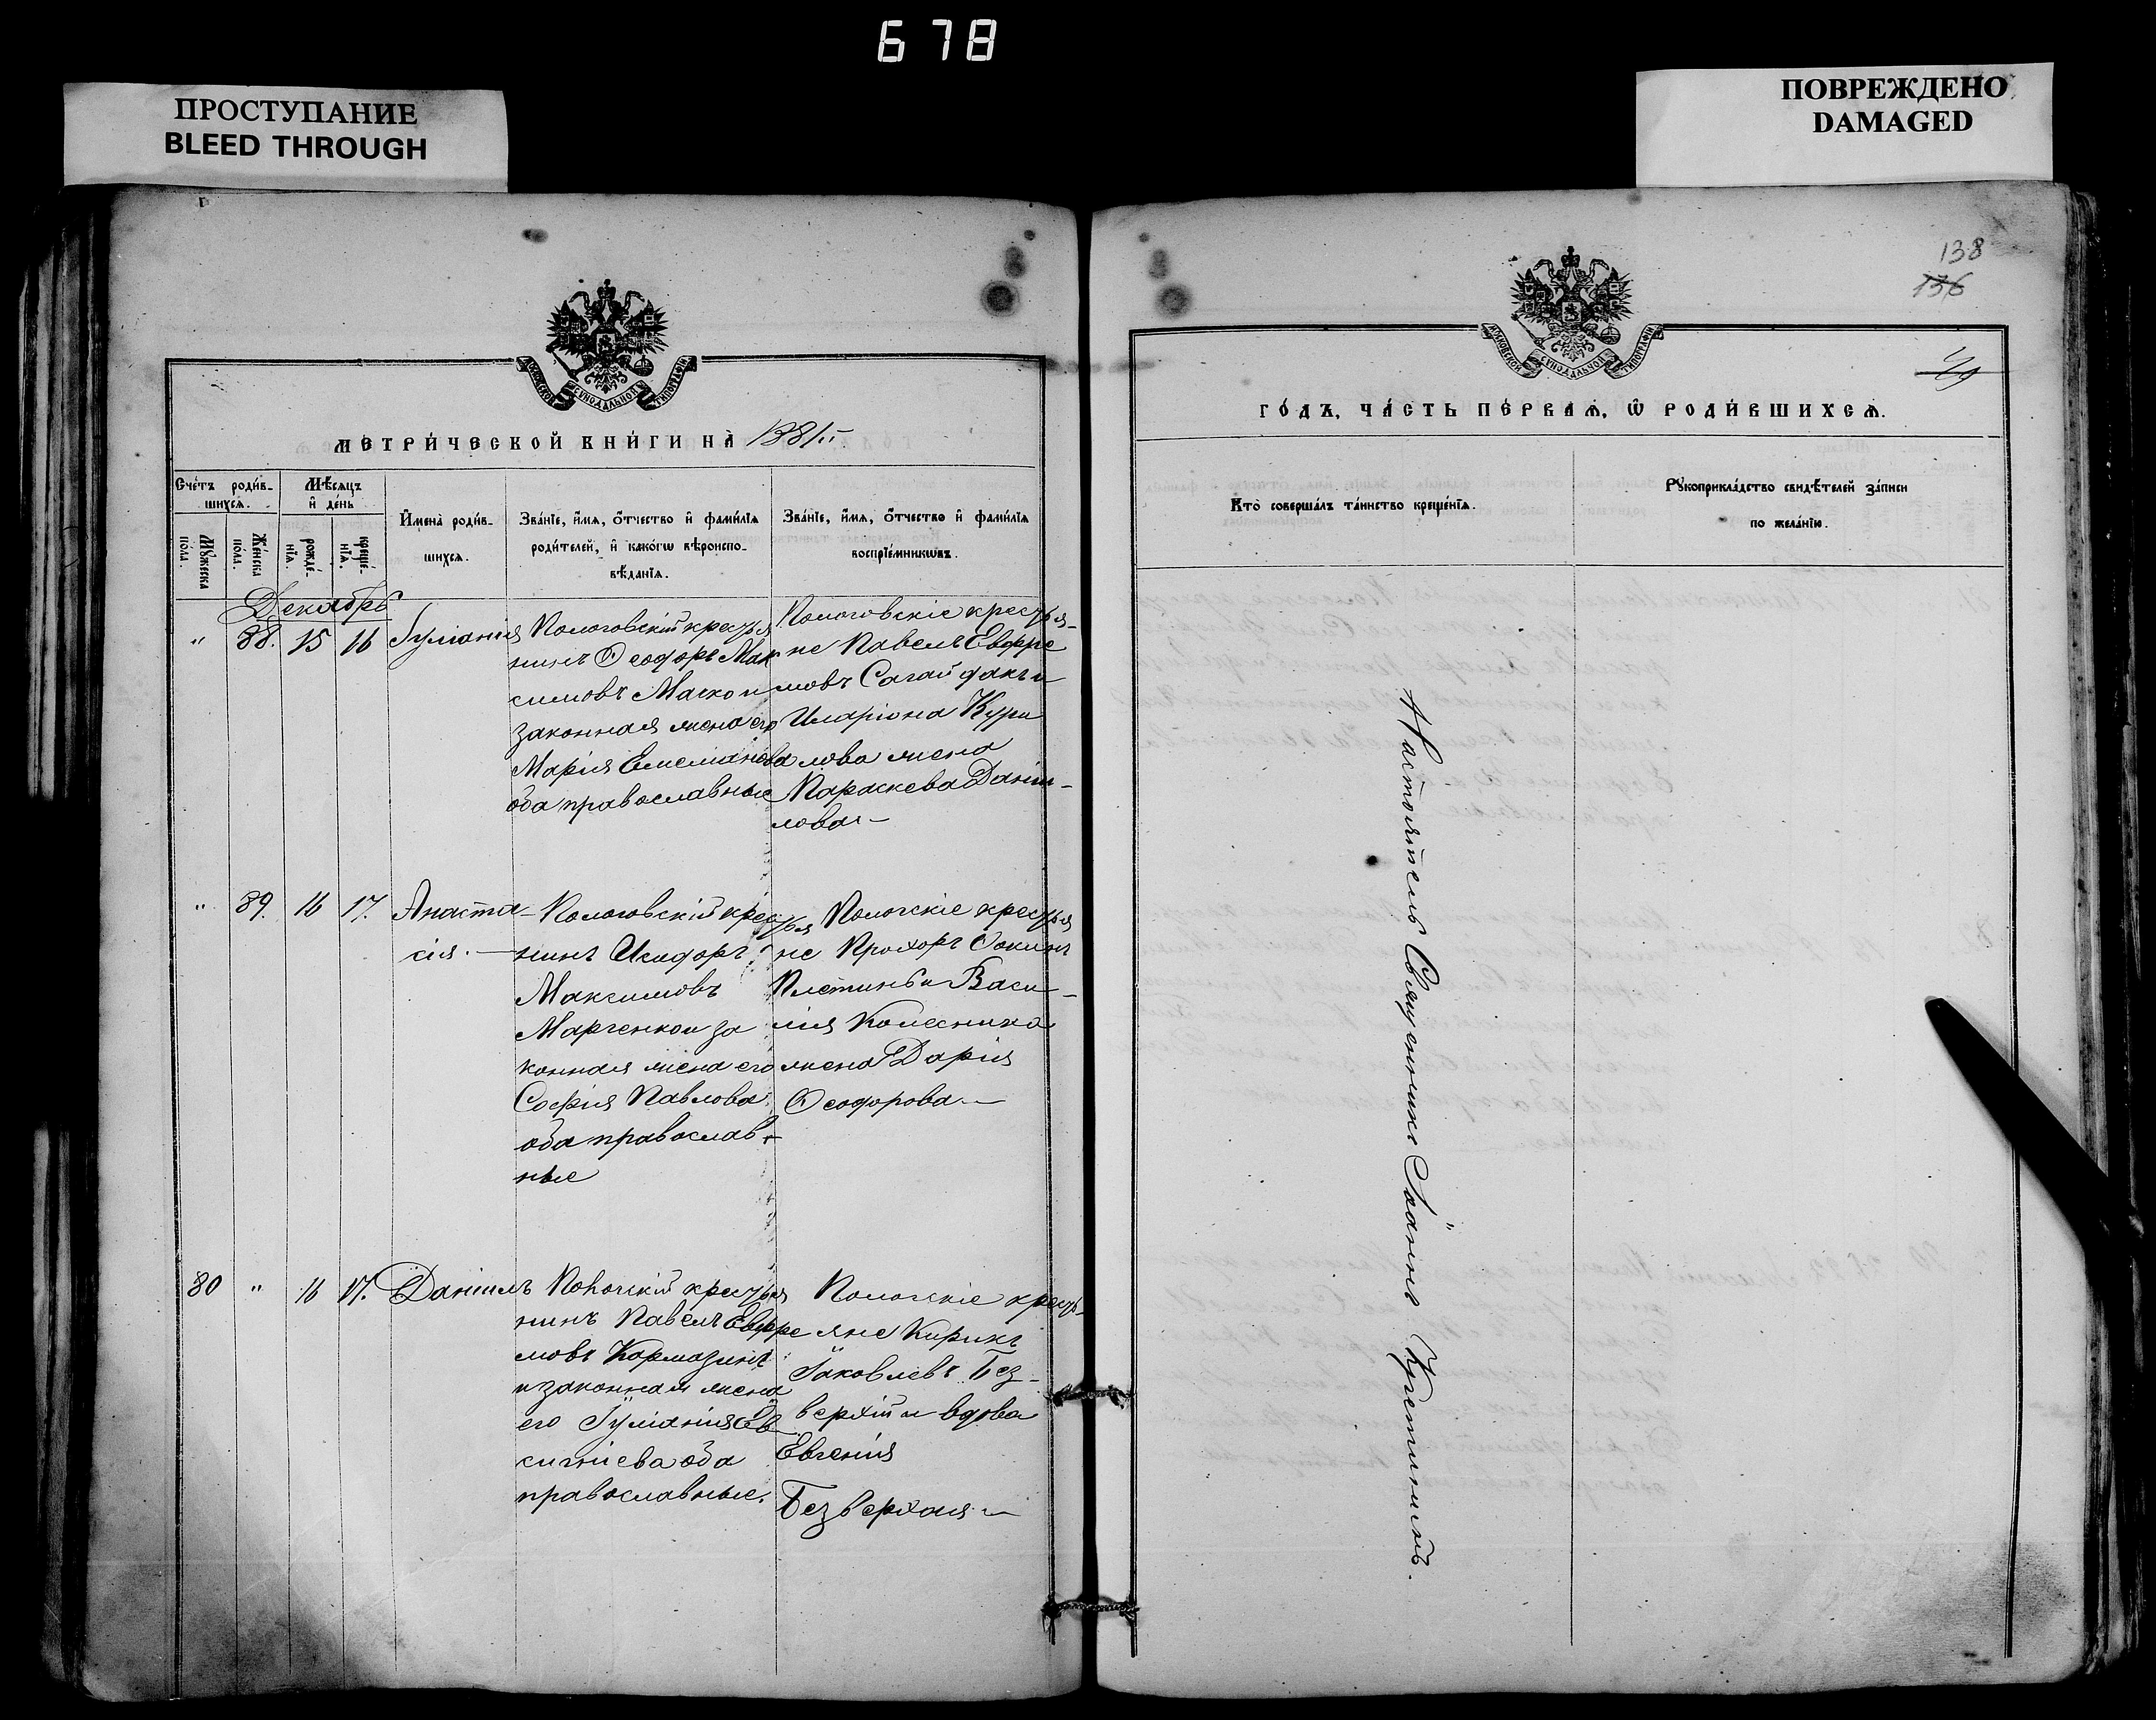 678
ПРОСТУПАНИЕ
BLEED THROUGH
ПОВРЕЖДЕНО
DAMAGED
МОСКОВСКОЙ СѴНОДАЛЬНОЙ ТИПОГРАФІИ
МЕТРИ́ЧЕСКОЙ КНИ́ГИ НА̀ 1881.
Сче́тъ роди́в-
шихсѧ.
Мѣ́сѧцъ
и҆ де́нь
Мꙋ́жеска
по́ла.
Же́нска
по́ла.
рожде́-
нїѧ.
креще́-
нїѧ.
И҆мена̀ роди́в-
шихсѧ.
Зва́нїе, и҆́мѧ, ѻ҆́тчество и҆ фами́лїѧ
роди́телей, и҆ како́гѡ вѣроиспо-
вѣ́данїѧ.
Зва́нїе, и҆́мѧ, ѻ҆́тчество и҆ фами́лїѧ
воспрїе́мникѡвъ.
Декабрь
" 88. 15 16 Іуліанія
Пологовскій крестья
нинъ Ѳеодоръ Мак
симовъ Маско и
законная жена его
Марія Емеліанова
оба православные
Пологовскіе крестья-
не Павелъ Евфре
мовъ Сагайдакъ и
Иларіона Кури
лова жена
Параскева Даніи-
лова
" 89. 16 17. Анаста-
сія.
Пологовскій крестья
нинъ Исидоръ
Максимовъ
Марченко и за
конная жена его
Софія Павлова
оба православ-
ные
Пологскіе крестья
не Прохоръ Ѳокинъ
Плетинь и Васи-
лія Колесника
жена Дарія
Ѳеодорова
80 " 16 17. Даніилъ
Пологскій крестья
нинъ Павелъ Евфре
мовъ Кормазинъ
и законная жена
его Іуліанія Ев
сигніева оба
православные.
Пологскіе кресть-
яне Кирикъ
Іаковлевъ Без-
верхій и вдова
Евгенія
Безверхая
138
136
МОСКОВСКОЙ СѴНОДАЛЬНОЙ ТИПОГРАФІИ
ГО́ДЪ, ЧА́СТЬ ПЕ́РВАѦ, Ѽ РОДИ́ВШИХСѦ.
Кто̀ соверша́лъ та́инство креще́нїѧ.
Рꙋкоприкла́дство свидѣ́телей за́писи
по жела́нїю.
Настоятель Священникъ Іоаннъ